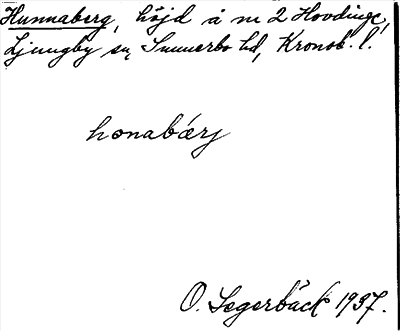 Hunnaberg, höjd å nr 2 Hovdinge,
Ljungby sn, Sunnerbo hd, Kronob. l.
honabärj
O. Segerbäck 1937.